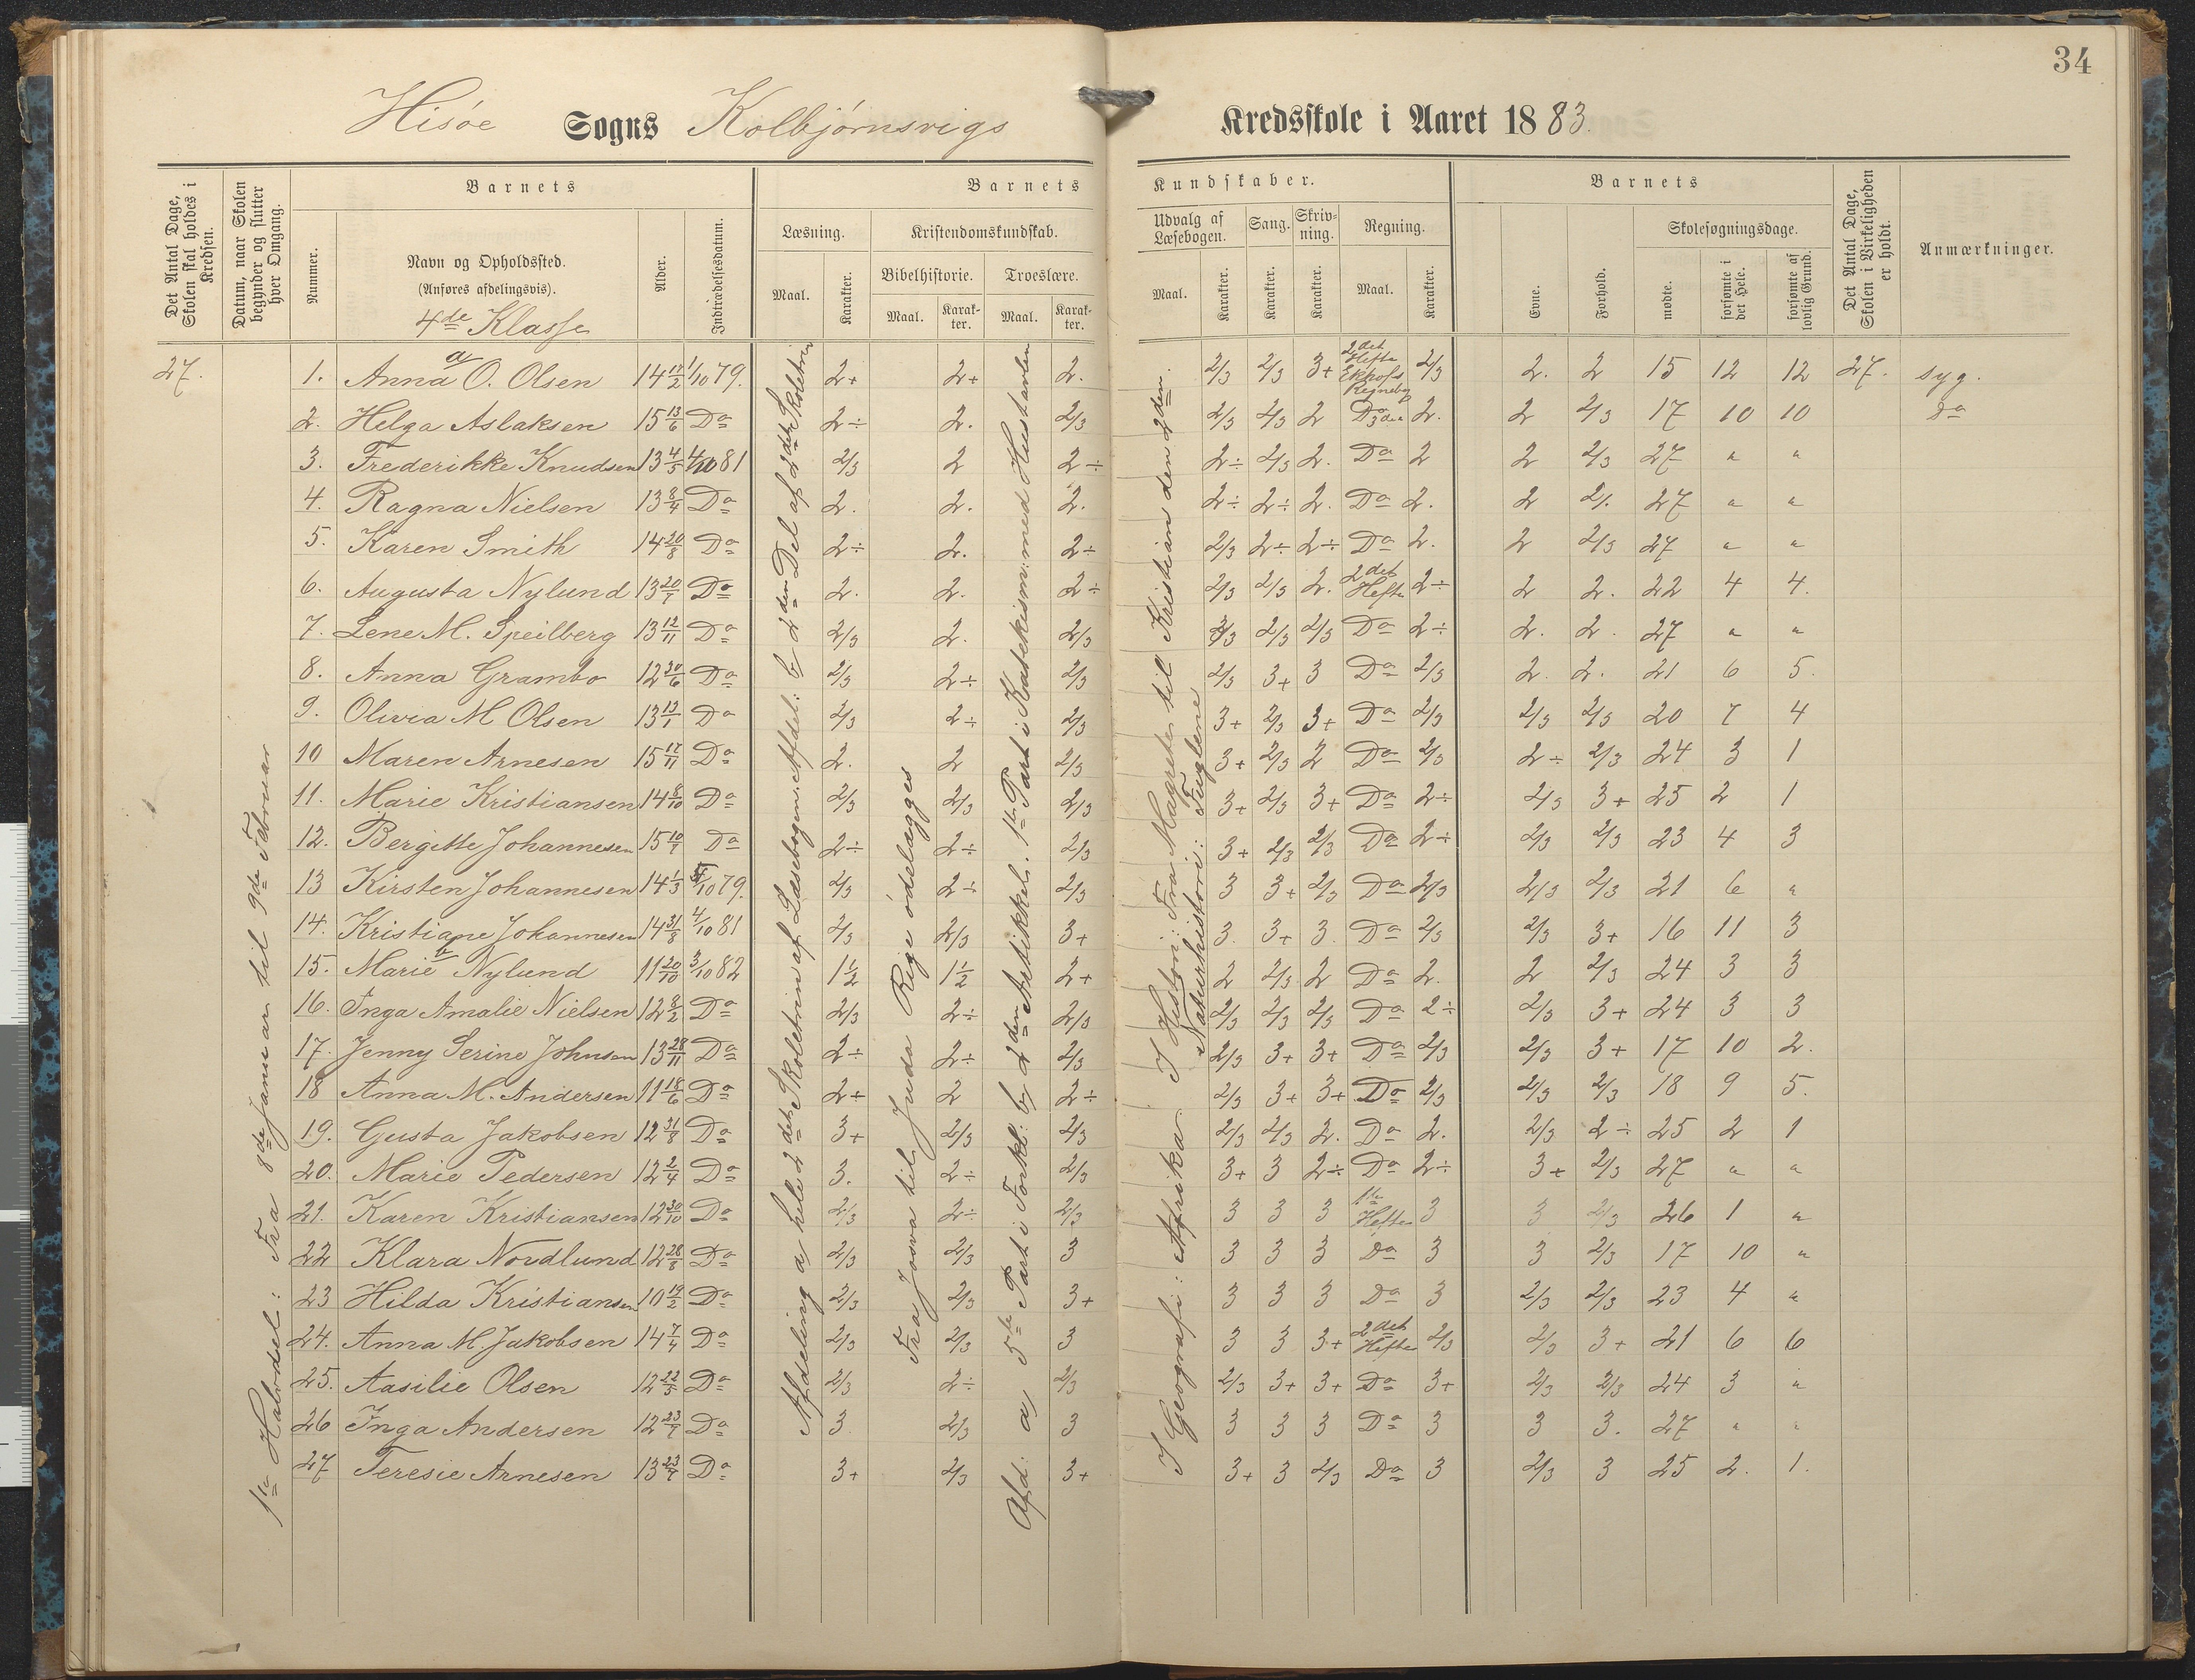 34
Hisöe Sogns Kolbjörnsvigs Kredsskole i Aaret 1883.
Det Antal Dage, Skolen skal holdes i Kredsen.
Datum, naar Skolen begynder og slutter hver Omgang.
Barnets
Nummer.
Navn og Opholdssted.
(Anføres afdelingsvis).
4de Klasse
Alder.
Indtrædelsesdatum.
Barnets Kundskaber.
Læsning.
Maal.
Karakter.
Kristendomskundskab.
Bibelhistorie.
Maal.
Karakter.
Troeslære.
Maal.
Karakter.
Udvalg af Læsebogen.
Maal.
Karakter.
Sang.
Karakter.
Skrivning.
Karakter.
Regning.
Maal.
Karakter.
Barnets
Evne.
Forhold.
Skolesøgningsdage.
mødte.
forsømte i det Hele.
forsømte af lovlig Grund.
Det Antal Dage, Skolen i Virkeligheden er holdt.
Anmærkninger.
27.
1te Halvdel: Fra 8de Januar til 9de Februar
Afdeling a hele 2det Skoletrin af Læsebogen. Afdel: b 2den Del af 2det Skoletrin
Fra Josva til Juda Rige ödelægges
Afd: a 5te Part i Forkl: b 2den Artikkel. 1te Part i Katekism: med Hustavlen
I Geografi: Afrika. I Histori: Fra Magrete til Kristian den 2den.
Naturhistorie: Fuglene
a
1. Anna O. Olsen 14 17/2 1/10 79. 2+ 2+ 2. 2/3 2/3 3+ 2det Hefte Ekhofs Regnebog 2/3 2. 2 15 12 12 27. syg.
2. Helga Aslaksen 15 13/6 Do 2÷ 2. 2/3 2/3 2/3 2 Do 3die 2. 2 2/3 17 10 10 do
3. Frederikke Knudsen 13 4/5 4/10 81 2/3 2 2÷ 2÷ 2/3 2. Do 2 2 2/3 27 " "
4. Ragna Nielsen 13 8/4 Do 2. 2. 2. 2÷ 2÷ 2. Do 2. 2 2. 27 " "
5. Karen Smith 14 20/8 Do 2÷ 2. 2÷ 2/3 2÷ 2÷ Do 2. 2 2/3 27 " "
6. Augusta Nylund 13 20/7 Do 2. 2. 2÷ 2/3 2/3 2. 2det Hefte 2÷ 2 2. 22 4 4.
7. Lene M. Speilberg 13 12/11 Do 2/3 2. 2/3 2/3 2/3 2/3 Do 2÷ 2. 2. 27 " "
8. Anna Grambo 12 20/6 Do 2/3 2÷ 2/3 2/3 3+ 3 Do 2/3 2. 2. 21 6 5.
9. Olivia M Olsen 13 13/1 Do 2/3 2÷ 2/3 3+ 2/3 3+ Do 2/3 2/3 2/3 20 7 4
10 Maren Arnesen 15 17/11 Do 2. 2 2/3 3+ 2/3 2 Do 2/3 2÷ 2/3 24 3 1
11. Marie Kristiansen 14 8/10 Do 2/3 2/3 2/3 3+ 2/3 3+ Do 2÷ 2/3 3+ 25 2 1
12. Bergitte Johannesen 15 10/7 Do 2÷ 2÷ 2/3 3+ 2/3 2/3 Do 2÷ 2/3 2/3 23 4 3
13 Kirsten Johannesen 14 1/3 /10 79. 2/3 2÷ 2/3 3 3+ 2/3 Do 2/3 2/3 2/3 21 6 "
14. Kristiane Johannesen 14 31/8 4/10 81 2/3 2/3 3+ 3. 3+ 3. Do 2/3 2/3 3+ 16 11 3
b
15. Marie Nylund 11 20/10 3/10 82 1½ 1½ 2+ 2 2/3 2 Do 2. 2 2/3 24 3 3
16. Inga Amalie Nielsen 12 8/2 Do 2/3 2÷ 2/3 2/3 2/3 2/3 Do 2÷ 2/3 3+ 24 3 3
17. Jenny Serine Johnsen 13 28/11 Do 2÷ 2÷ 2/3 2/3 3+ 3+ Do 2/3 2/3 3+ 17 10 2.
18 Anna M. Andersen 11 18/6 Do 2+ 2 2÷ 2/3 3+ 3+ Do 2/3 2/3 2/3 18 9 5.
19. Gusta Jakobsen 12 31/8 Do 3+ 2/3 2/3 2/3 2/3 2. Do 2. 2/3 2÷ 25 2 1
20. Marie Pedersen 12 2/4 Do 3. 2÷ 2/3 3+ 3 2÷ Do 2÷ 3+ 2/3 27 " "
21. Karen Kristiansen 12 30/10 Do 2/3 2÷ 2/3 3 3 3 1te Hefte 3 3 2/3 26 1 "
22 Klara Nordlund 12 28/8 Do 2/3 2/3 3 3 3 3 Do 3 3 2/3 17 10 "
23 Hilda Kristiansen 10 19/2 Do 2/3 2/3 3+ 3 3 3 Do 3 2/3 2/3 23 4 "
24. Anna M. Jakobsen 14 7/4 Do 2/3 2/3 3 3 3 3+ 2det Hefte 2/3 2/3 3+ 21 6 6
25. Aasilie Olsen 12 22/5 Do 2/3 2÷ 2/3 2/3 3+ 3+ Do 3+ 2/3 2/3 24 3 "
26 Inga Andersen 12 23/7 Do 3 2/3 3 3 3 3 Do 3 3 3. 27 " "
27 Teresie Arnesen 13 23/7 Do 3+ 2/3 3+ 3+ 3 2/3 Do 3 2/3 3 25 2. 1.